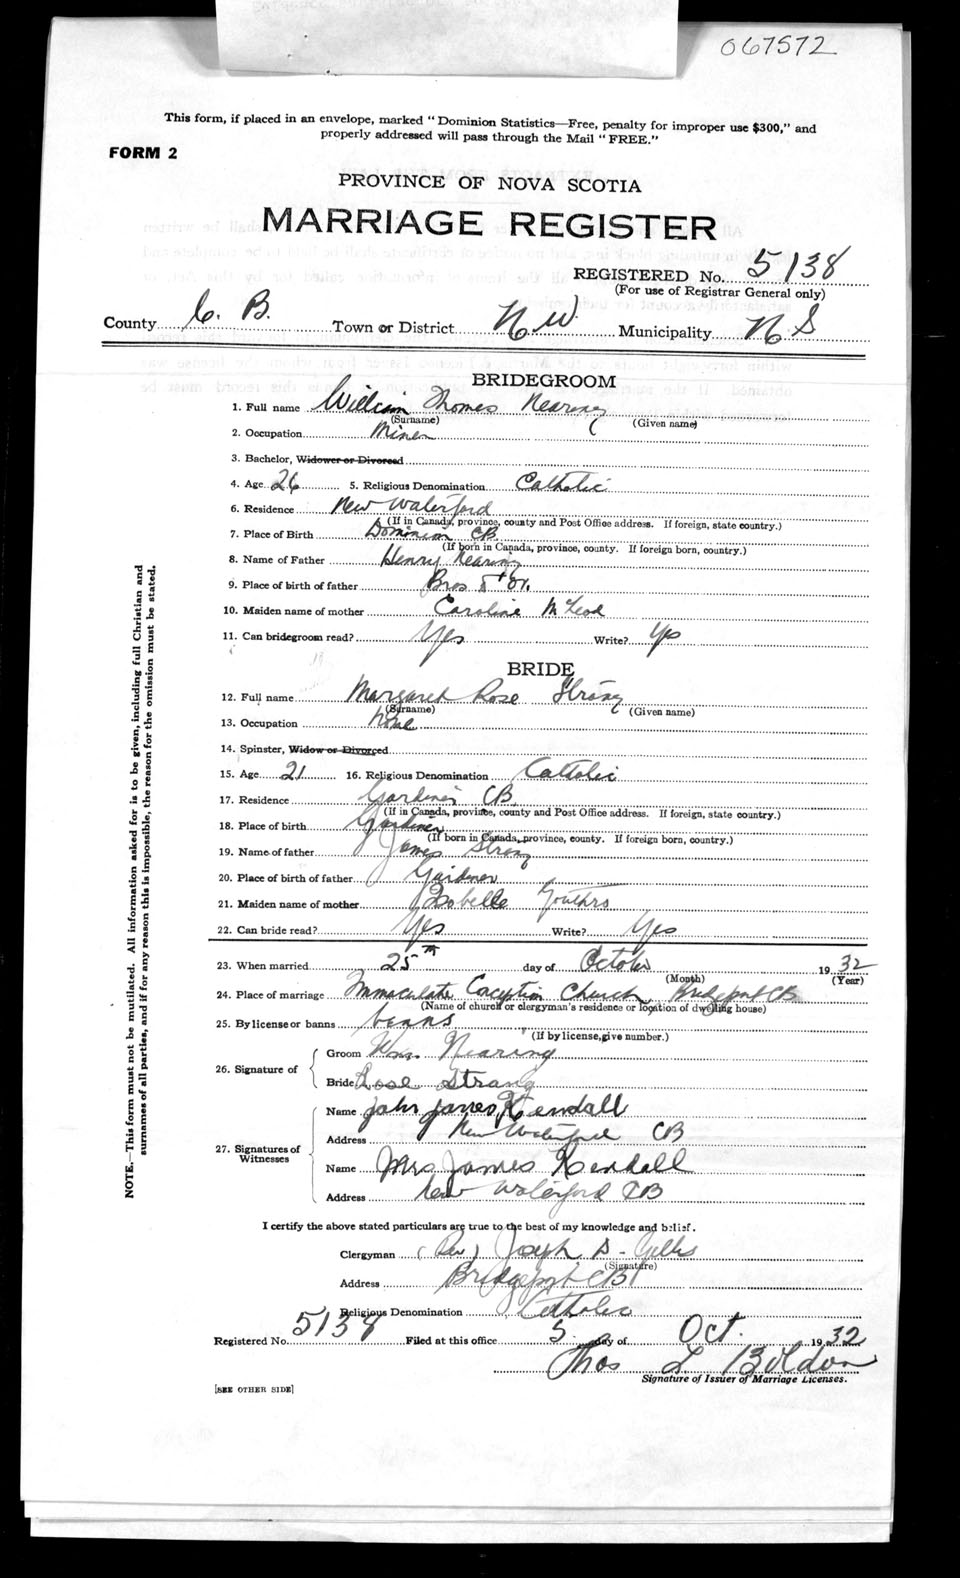 067572
This form, if placed in an envelope, marked "Dominion Statistics—Free, penalty for improper use $300," and
properly addressed will pass through the Mail "FREE."
FORM 2
PROVINCE OF NOVA SCOTIA
MARRIAGE REGISTER
REGISTERED No. 5138
(For use of Registrar General only)
County C. B. Town or District N.W. Municipality N S
BRIDEGROOM
1. Full name William Thomas Nearing
(Surname) (Given name)
2. Occupation Miner
3. Bachelor, Widower or Divorced
4. Age 26 5. Religious Denomination Catholic
6. Residence New Waterford
(If in Canada, province, county and Post Office address. If foreign, state country.)
7. Place of Birth Dominion CB
(If born in Canada, province, county. If foreign born, country.)
8. Name of Father Henry Nearing
9. Place of birth of father
10. Maiden name of mother Caroline McLeod
11. Can bridegroom read? Yes Write? Yes
BRIDE
12. Full name Margaret Rose Strang
(Surname) (Given name)
13. Occupation None
14. Spinster, Widow or Divorced
15. Age 21 16. Religious Denomination Catholic
17. Residence Gardiner CB
(If in Canada, province, county and Post Office address. If foreign, state country.)
18. Place of birth Gardiner
(If born in Canada, province, county. If foreign born, country.)
19. Name of father James Strang
20. Place of birth of father Gardiner
21. Maiden name of mother Isabelle Gouthro
22. Can bride read? Yes Write? Yes
23. When married 25th day of October 1932
(Month) (Year)
24. Place of marriage Immaculate Conception Church Bridgeport CB
(Name of church or clergyman's residence or location of dwelling house)
25. By license or banns banns
(If by license, give number.)
26. Signature of
Groom Wm. Nearing
Bride Rose Strang
27. Signatures of Witnesses
Name John James Kendall
Address New Waterford CB
Name Mrs James Kendall
Address New Waterford CB
I certify the above stated particulars are true to the best of my knowledge and belief.
Clergyman (Rev) Joseph D. Gillis
(Signature)
Address Bridgeport CB
Religious Denomination Catholic
Registered No. 5138 Filed at this office 5 day of Oct. 1932
Thos L Boldon
Signature of Issuer of Marriage Licenses.
[SEE OTHER SIDE]
NOTE.—This form must not be mutilated. All information asked for is to be given, including full Christian and
surnames of all parties, and if for any reason this is impossible, the reason for the omission must be stated.